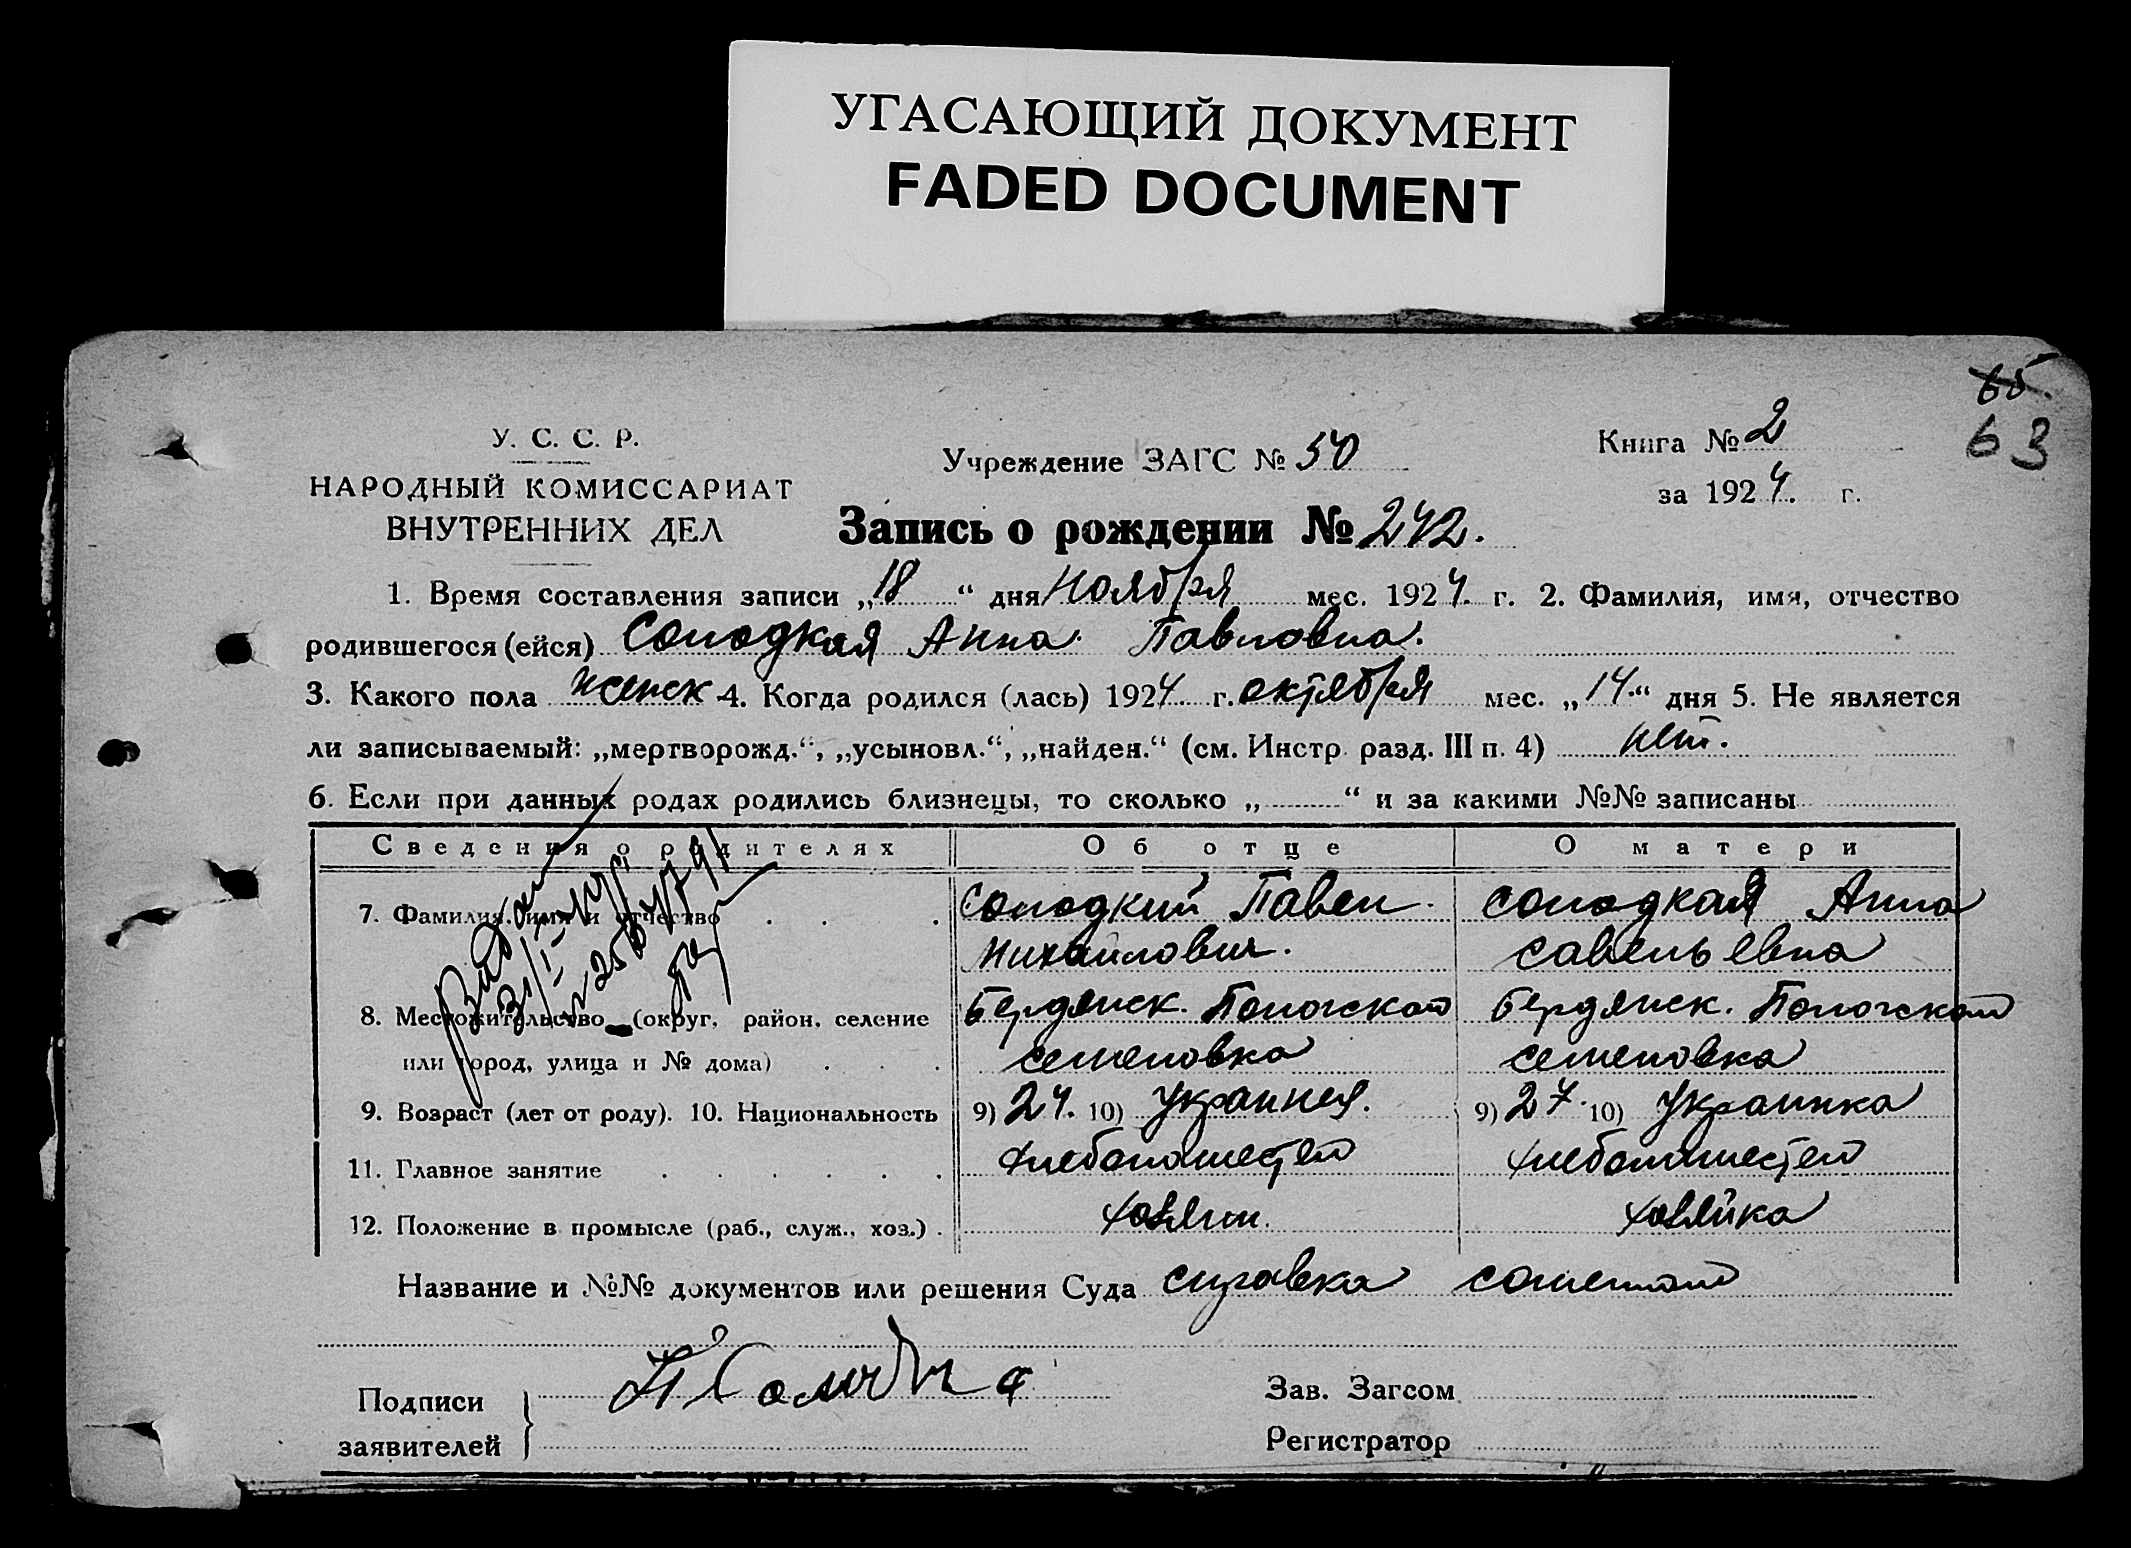 УГАСАЮЩИЙ ДОКУМЕНТ
FADED DOCUMENT
65.
63
У. С. С. Р.
НАРОДНЫЙ КОМИССАРИАТ
ВНУТРЕННИХ ДЕЛ
Учреждение ЗАГС № 50
Книга № 2
за 1924. г.
Запись о рождении № 242.
1. Время составления записи „18“ дня Ноября мес. 1924. г. 2. Фамилия, имя, отчество
родившегося (ейся) Солодкая Анна Павловна.
3. Какого пола женск 4. Когда родился (лась) 1924 г. октября мес. „14.“ дня 5. Не является
ли записываемый: „мертворожд.“, „усыновл.“, „найден.“ (см. Инстр. разд. III п. 4) нет.
6. Если при данных родах родились близнецы, то сколько „ “ и за какими №№ записаны
Сведения о родителях Об отце О матери
7. Фамилия, имя и отчество Солодкий Павел Солодкая Анна
Михайлович. Савельевна
8. Местожительство (округ, район, селение Бердянск. Пологской Бердянск. Пологской
или город, улица и № дома) Семеновка Семеновка
9. Возраст (лет от роду). 10. Национальность 9) 24. 10) Украинец. 9) 27. 10) Украинка
11. Главное занятие хлебопашество хлебопашество
12. Положение в промысле (раб., служ., хоз.) хозяин. хозяйка
Название и №№ документов или решения Суда справка
Подписи
заявителей
Зав. Загсом
Регистратор